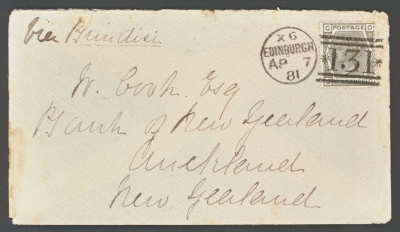 via Brindisi
X6
EDINBURGH
AP 7
81
C POSTAGE O
131
W. Cook. Esq
Bank of New Zealand
Auckland
New Zealand